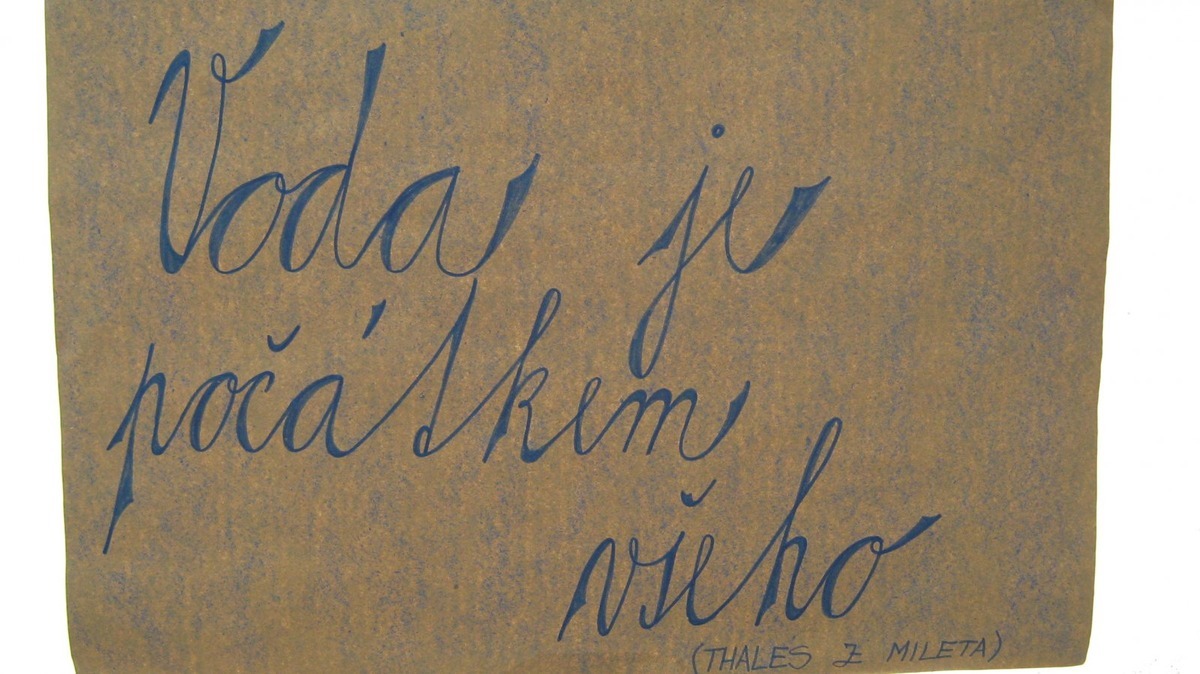 Voda je
počátkem
všeho
(THALES Z MILETA)